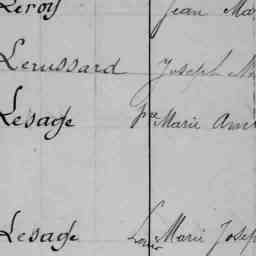 Leroy Jean Mar
Lerussard Joseph Ma
Lesage Marie Ann
Lesage Louis Marie Josep